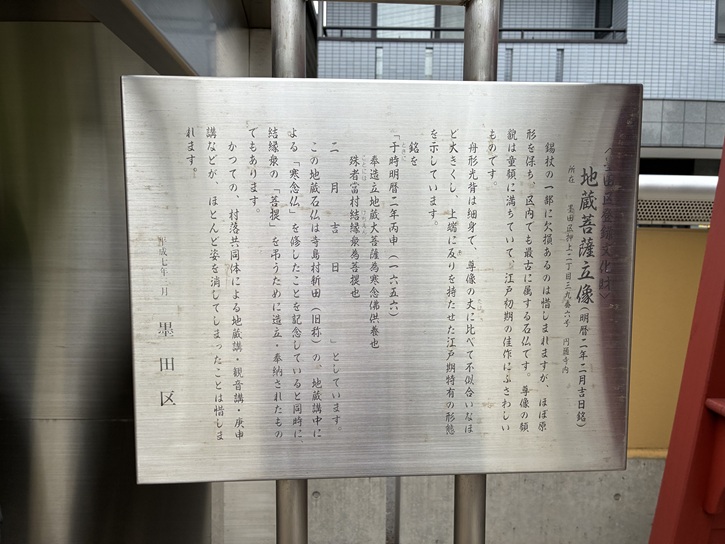 〈墨田区登録文化財〉
地蔵菩薩立像(明暦二年二月吉日銘)
所在 墨田区押上二丁目三九番六号 円通寺内
錫杖の一部に欠損あるのは惜しまれますが、ほぼ原
形を保ち、区内でも最古に属する石仏です。尊像の顔
貌は童顔に満ちていて、江戸初期の佳作にふさわしい
ものです。
舟形光背は細身で、尊像の丈に比べて不似合いなほ
ど大きくし、上端に反りを持たせた江戸期特有の形態
を示しています。
銘を
「于時明暦二年丙申(一六五六)
奉造立地蔵大菩薩為寒念佛供養也
殊者當村結縁衆為菩提也
二月吉日 」としています。
この地蔵石仏は寺島村新田(旧称)の、地蔵講中に
よる「寒念仏」を修したことを記念していると同時に
結縁衆の「菩提」を弔うために造立・奉納されたもの
でもあります。
かつての、村落共同体による地蔵講・観音講・庚申
講などが、ほとんど姿を消してしまったことは惜しま
れます。
平成七年 月
墨田区